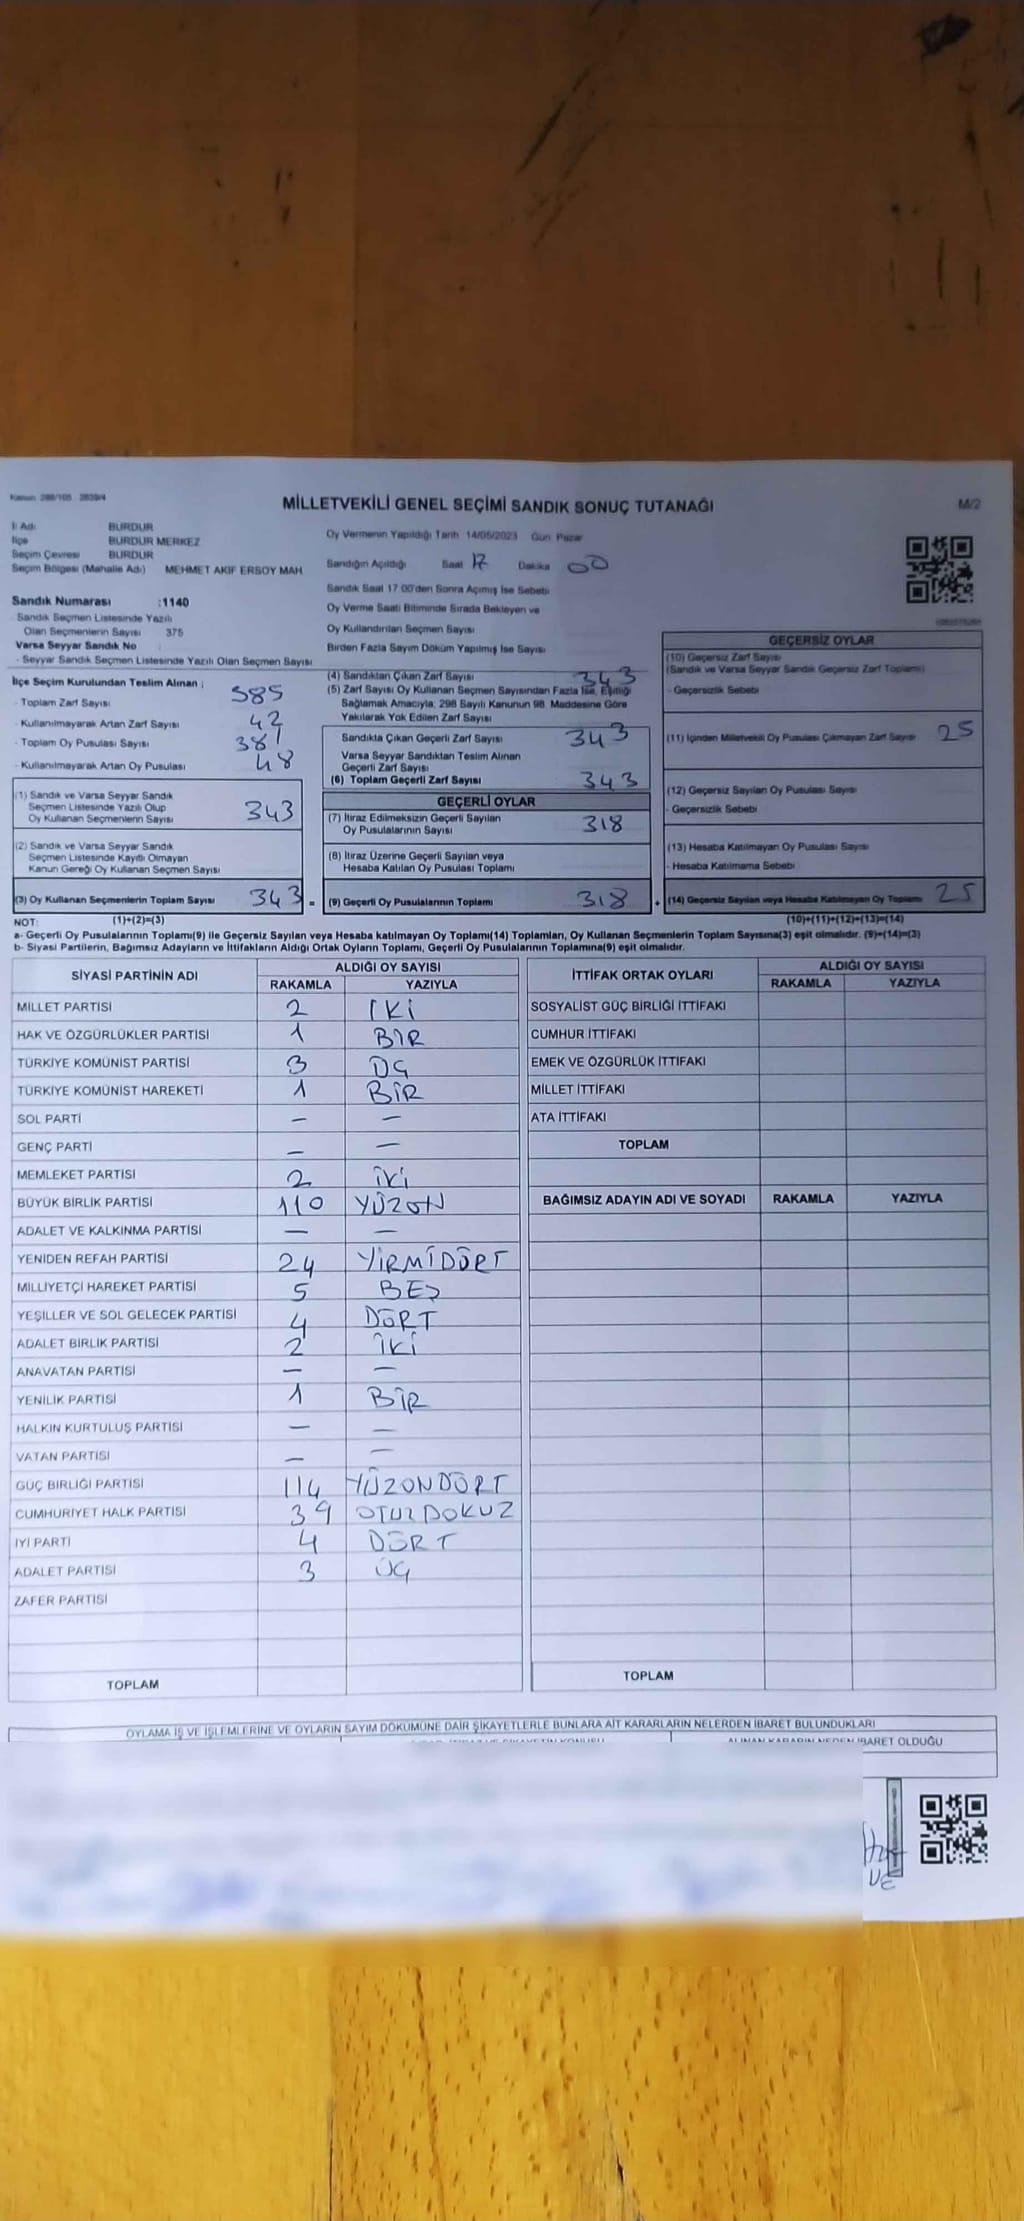 Kanun 298/105 2839/4
MİLLETVEKİLİ GENEL SEÇİMİ SANDIK SONUÇ TUTANAĞI
M/2
İl Adı BURDUR
İlçe BURDUR MERKEZ
Seçim Çevresi BURDUR
Seçim Bölgesi (Mahalle Adı) MEHMET AKİF ERSOY MAH
Sandık Numarası :1140
Sandık Seçmen Listesinde Yazılı
Olan Seçmenlerin Sayısı 375
Varsa Seyyar Sandık No
- Seyyar Sandık Seçmen Listesinde Yazılı Olan Seçmen Sayısı
Oy Vermenin Yapıldığı Tarih 14/05/2023 Gün Pazar
Sandığın Açıldığı Saat 17 Dakika 00
Sandık Saat 17.00'den Sonra Açımış İse Sebebi
Oy Verme Saati Bitiminde Sırada Bekleyen ve
Oy Kullandırılan Seçmen Sayısı
Birden Fazla Sayım Döküm Yapılmış İse Sayısı
İlçe Seçim Kurulundan Teslim Alınan ;
- Toplam Zarf Sayısı 385
- Kullanılmayarak Artan Zarf Sayısı 42
- Toplam Oy Pusulası Sayısı 381
- Kullanılmayarak Artan Oy Pusulası 48
(1) Sandık ve Varsa Seyyar Sandık
Seçmen Listesinde Yazılı Olup
Oy Kullanan Seçmenlerin Sayısı 343
(2) Sandık ve Varsa Seyyar Sandık
Seçmen Listesinde Kayıtlı Olmayan
Kanun Gereği Oy Kullanan Seçmen Sayısı
(3) Oy Kullanan Seçmenlerin Toplam Sayısı 343 =
(4) Sandıktan Çıkan Zarf Sayısı 343
(5) Zarf Sayısı Oy Kullanan Seçmen Sayısından Fazla İse, Eşitliği
Sağlamak Amacıyla, 298 Sayılı Kanunun 98. Maddesine Göre
Yakılarak Yok Edilen Zarf Sayısı
Sandıkta Çıkan Geçerli Zarf Sayısı 343
Varsa Seyyar Sandıktan Teslim Alınan
Geçerli Zarf Sayısı
(6) Toplam Geçerli Zarf Sayısı 343
GEÇERLİ OYLAR
(7) İtiraz Edilmeksizin Geçerli Sayılan
Oy Pusulalarının Sayısı 318
(8) İtiraz Üzerine Geçerli Sayılan veya
Hesaba Katılan Oy Pusulası Toplamı
(9) Geçerli Oy Pusulalarının Toplamı 318 +
GEÇERSİZ OYLAR
(10) Geçersiz Zarf Sayısı
(Sandık ve Varsa Seyyar Sandık Geçersiz Zarf Toplamı)
- Geçersizlik Sebebi
(11) İçinden Milletvekili Oy Pusulası Çıkmayan Zarf Sayısı 25
(12) Geçersiz Sayılan Oy Pusulası Sayısı
- Geçersizlik Sebebi
(13) Hesaba Katılmayan Oy Pusulası Sayısı
- Hesaba Katılmama Sebebi
(14) Geçersiz Sayılan veya Hesaba Katılmayan Oy Toplamı 25
NOT: (1)+(2)=(3) (10)+(11)+(12)+(13)=(14)
a- Geçerli Oy Pusulalarının Toplamı(9) ile Geçersiz Sayılan veya Hesaba katılmayan Oy Toplamı(14) Toplamları, Oy Kullanan Seçmenlerin Toplam Sayısına(3) eşit olmalıdır. (9)+(14)=(3)
b- Siyasi Partilerin, Bağımsız Adayların ve İttifakların Aldığı Ortak Oyların Toplamı, Geçerli Oy Pusulalarının Toplamına(9) eşit olmalıdır.
SİYASİ PARTİNİN ADI ALDIĞI OY SAYISI
RAKAMLA YAZIYLA
MİLLET PARTİSİ 2 İKİ
HAK VE ÖZGÜRLÜKLER PARTİSİ 1 BİR
TÜRKİYE KOMÜNİST PARTİSİ 3 ÜÇ
TÜRKİYE KOMÜNİST HAREKETİ 1 BİR
SOL PARTİ — —
GENÇ PARTİ — —
MEMLEKET PARTİSİ 2 İKİ
BÜYÜK BİRLİK PARTİSİ 110 YÜZON
ADALET VE KALKINMA PARTİSİ — —
YENİDEN REFAH PARTİSİ 24 YİRMİDÖRT
MİLLİYETÇİ HAREKET PARTİSİ 5 BEŞ
YEŞİLLER VE SOL GELECEK PARTİSİ 4 DÖRT
ADALET BİRLİK PARTİSİ 2 İKİ
ANAVATAN PARTİSİ — —
YENİLİK PARTİSİ 1 BİR
HALKIN KURTULUŞ PARTİSİ — —
VATAN PARTİSİ — —
GÜÇ BİRLİĞİ PARTİSİ 114 YÜZONDÖRT
CUMHURİYET HALK PARTİSİ 39 OTUZDOKUZ
İYİ PARTİ 4 DÖRT
ADALET PARTİSİ 3 ÜÇ
ZAFER PARTİSİ
TOPLAM
İTTİFAK ORTAK OYLARI ALDIĞI OY SAYISI
RAKAMLA YAZIYLA
SOSYALİST GÜÇ BİRLİĞİ İTTİFAKI
CUMHUR İTTİFAKI
EMEK VE ÖZGÜRLÜK İTTİFAKI
MİLLET İTTİFAKI
ATA İTTİFAKI
TOPLAM
BAĞIMSIZ ADAYIN ADI VE SOYADI RAKAMLA YAZIYLA
TOPLAM
OYLAMA İŞ VE İŞLEMLERİNE VE OYLARIN SAYIM DÖKÜMÜNE DAİR ŞİKAYETLERLE BUNLARA AİT KARARLARIN NELERDEN İBARET BULUNDUKLARI
ALINAN KARARIN NEDEN İBARET OLDUĞU